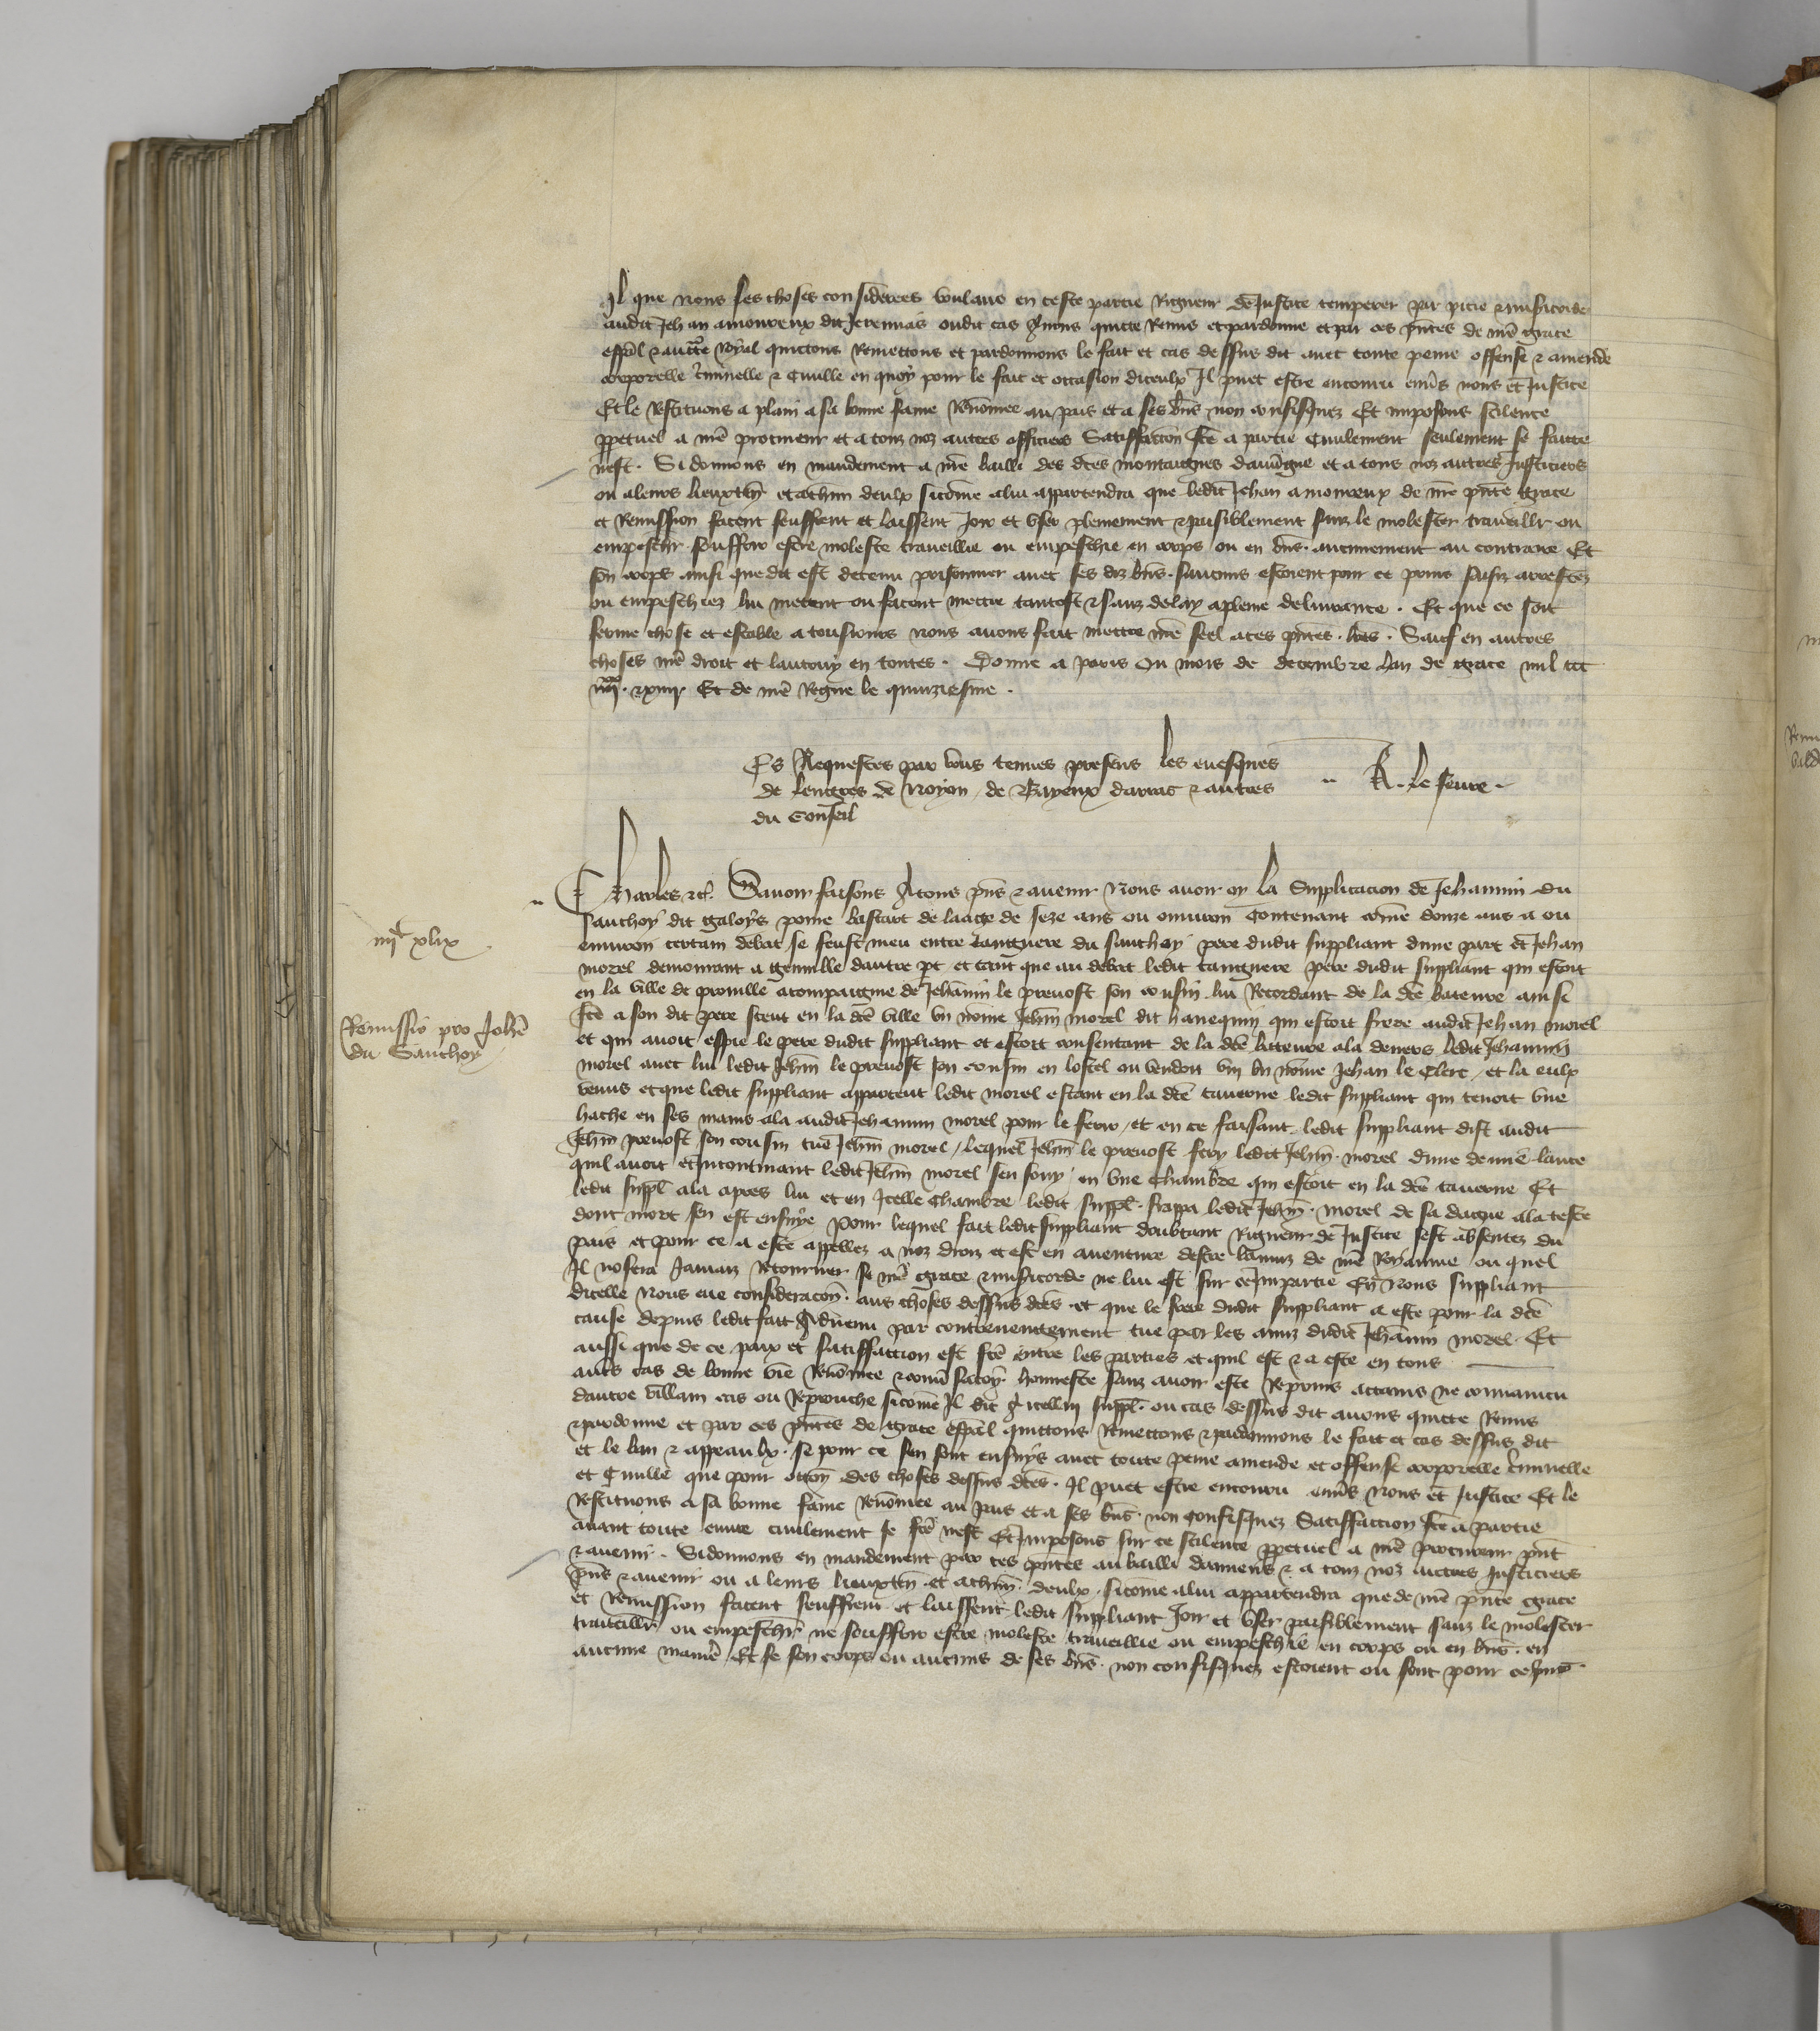 Il que Nous ses choses considerees voulans en ceste partie Rigueur de Justice temperer par pitie & misericorde
audit Jehan amoureux dit Jeremias oudit cas Avons quicte Remis et pardonne et par ces pntes de nre grace
especl & auctte Royal quictons Remettons et pardonnons le fait et cas dessus dit avec toute peine offense & amende
corporelle criminelle & civille en quoy pour le fait et occasion diceulx Il puet estre encouru envs nous et Justice
Et le Restituons a plain a sa bonne fame Renomee au pais et a ses bns non confisquez Et imposons scilence
ppetuel a nre procureur et a touz noz autres officiers Satisfaccion fte a partie civilement seulement se faicte
nest. Si donnons en mandement a nre bailli des dtes montaignes dauvgne et a tous noz autres Justiciers
ou a leurs lieuxten et a chun deulx sicome a lui appartendra que ledit Jehan amoureux de nre pnte grace
et Remission facent seuffrent et laissent Joir et user plainement & paisiblement sanz le molester travaillr ou
empeschr souffrir estre moleste travaillie ou empeschie en corps ou en bns aucunement au contraire Et
son corps ainsi que dit est detenu prisonnier avec ses diz bns saucuns estoient pour ce prins saisiz arrestez
ou empeschiez lui mettent ou facent mettre tantost & sanz delay a pleine delivrance. Et que ce soit
ferme chose et estable a tousjours nous avons fait mettre nre seel a ces pntes ltres. Sauf en autres
choses nre droit et lautruy en toutes. Donne a paris ou mois de decembre lan de grace mil ccc
iiijxx & xiiij. Et de nre Regne le quinziesme.
Es Requestes par vous tenues presens les evesques
de lengres de Noyon de Bayeux darras & autres
du Conseil
A. le fevre.
Charles &c. Savoir faisons A tous pns & avenir Nous avoir oy la Supplicacion de Jehannin du
Sauchoy dit galoys povre bastart de laage de seze ans ou environ Contenant come douze ans a ou
environ certain debat se feust meu entre tanguere du Sauchoy pere dudit suppliant dune part et Jehan
morel demourant a genville dautre pt et tant que au debat ledit tanguere pere dudit suppliant qui estoit
en la ville de prouille acompaignie de Jehannin le prevost son cousin lui Recordant de la dte bateure ainsi
fte a son dit pere sceut en la dte ville un nome Jehin morel dit hanequin qui estoit frere audit Jehan morel
et qui avoit espie le pere dudit suppliant et estoit consentant de la dte bateure ala devers ledit Jehannin
morel avec lui ledit Jehin le prevost son cousin en lostel ou vendoit vin un nome Jehan le Clerc et la eulx
venus et que ledit suppliant apparceut ledit morel estant en la dte taverne ledit suppliant qui tenoit une
hache en ses mains ala audit Jehannin morel pour le ferir, et en ce faisant ledit suppliant dist audit
Jehin prevost son cousin tue Jehin morel / lequel Jehin le prevost fery ledit Jehin morel dune demie lance
quil avoit et Incontinant ledit Jehin morel sen fouy en une chambre qui estoit en la dte taverne Et
ledit suppl ala apres lui et en Icelle Chambre ledit suppl. frappa ledit Jehin. morel de sa dague a la teste
dont mort sen est ensuye Pour lequel fait ledit suppliant doubtant Rigueur de Justice sest absentez du
pais et pour ce a este appellez a noz droiz et est en aventure destre banniz de nre Royaume ou quel
Il nosera Jamaiz Retourner se nre grace & misericorde ne lui est sur ce Impartie En nous suppliant
dicelle Nous eue consideracon aus choses dessus dtes et que le frere dudit suppliant a este pour la dte
cause depuis ledit fait Advenu par contrevengement tue par les amiz dudit Jehannin morel Et
aussi que de ce paix et satisfaction est fte entre les parties et quil est & a este en tous
auts cas de bonne vie Renomee & convsacoy honneste sanz avoir este Reprins actains ne convaincu
dautre villain cas ou Reprouche sicome Il dit A icellui suppl. ou cas dessus dit avons quicte Remis
& pardonne et par ces pntes de grace especl quittons Remettons & pardonnons le fait et cas dessus dit
et le ban & appeaulx. se pour ce sen sont ensuys avec toute peine amende et offense corporelle criminelle
et Civille que pour occon des choses dessus dtes. Il puet estre encouru envs Nous et Justice Et le
Restituons a sa bonne fame Renomee au pais et a ses bns non Confisquez Satisfaction fte a partie
avant toute euvre civilement se fte nest Et Imposons sur ce scilence ppetuel a nre procureur pnt
& avenir. Si donnons en mandement par ces pntes au bailli damiens & a touz noz autres Justiciers
pns & avenir ou a leurs lieuxten et a chun deulx sicome a lui appartendra que de nre pnte grace
et Remission facent seuffrent et laissent ledit suppliant Joir et user paisiblement sanz le molester
travaillr ou empeschr ne souffrir estre moleste travaillie ou empeschie en corps ou en bns en
aucune manre Et se son corps ou aucuns de ses bns non confisquez estoient ou sont pour ce prins
iiijc xlix
Remissio pro Johe
du Sauchoy